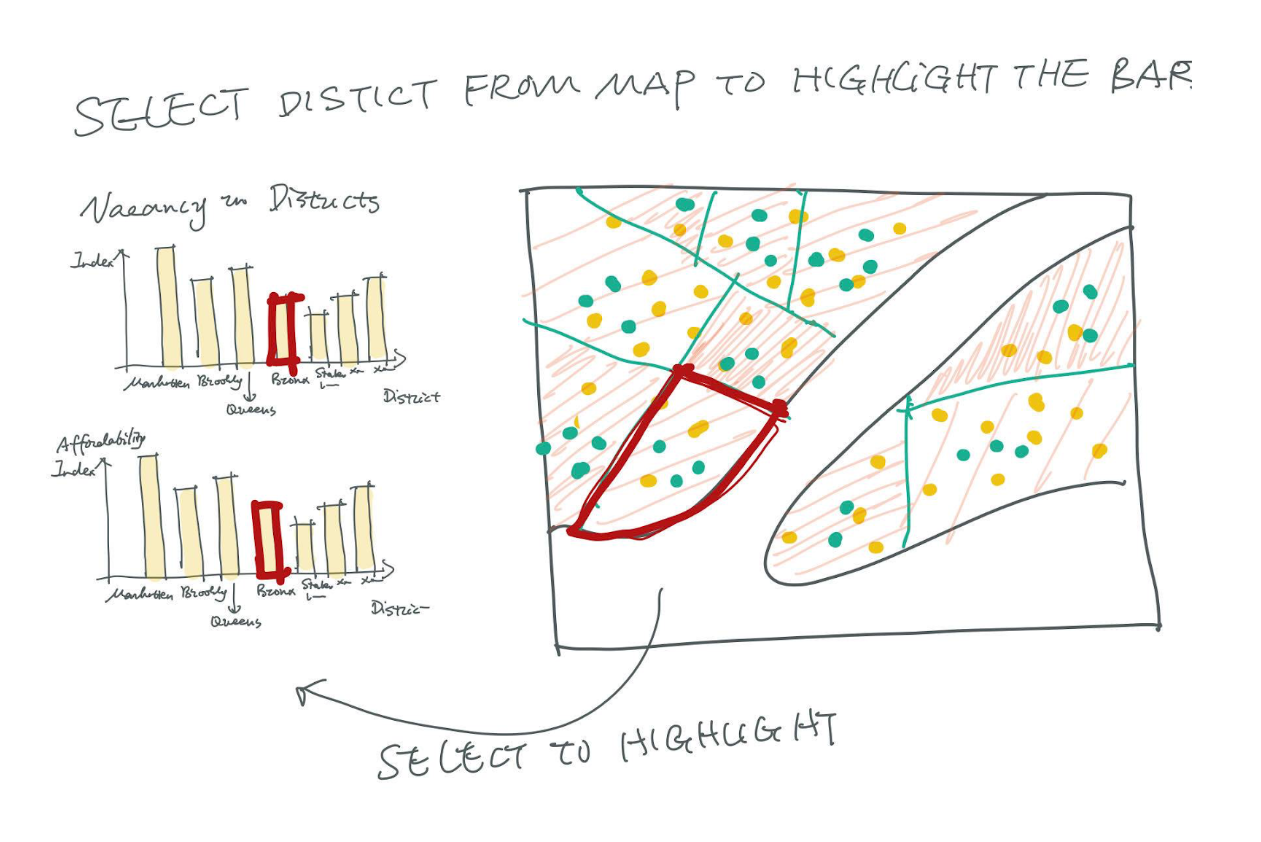 SELECT DISTICT FROM MAP TO HIGHLIGHT THE BAR
Vacancy in Districts
Index
Manhatten Brookly Bronx
Queens
District
Affordability
Index
Manhatten Brookly Bronx
Queens
District
SELECT TO HIGHLIGHT